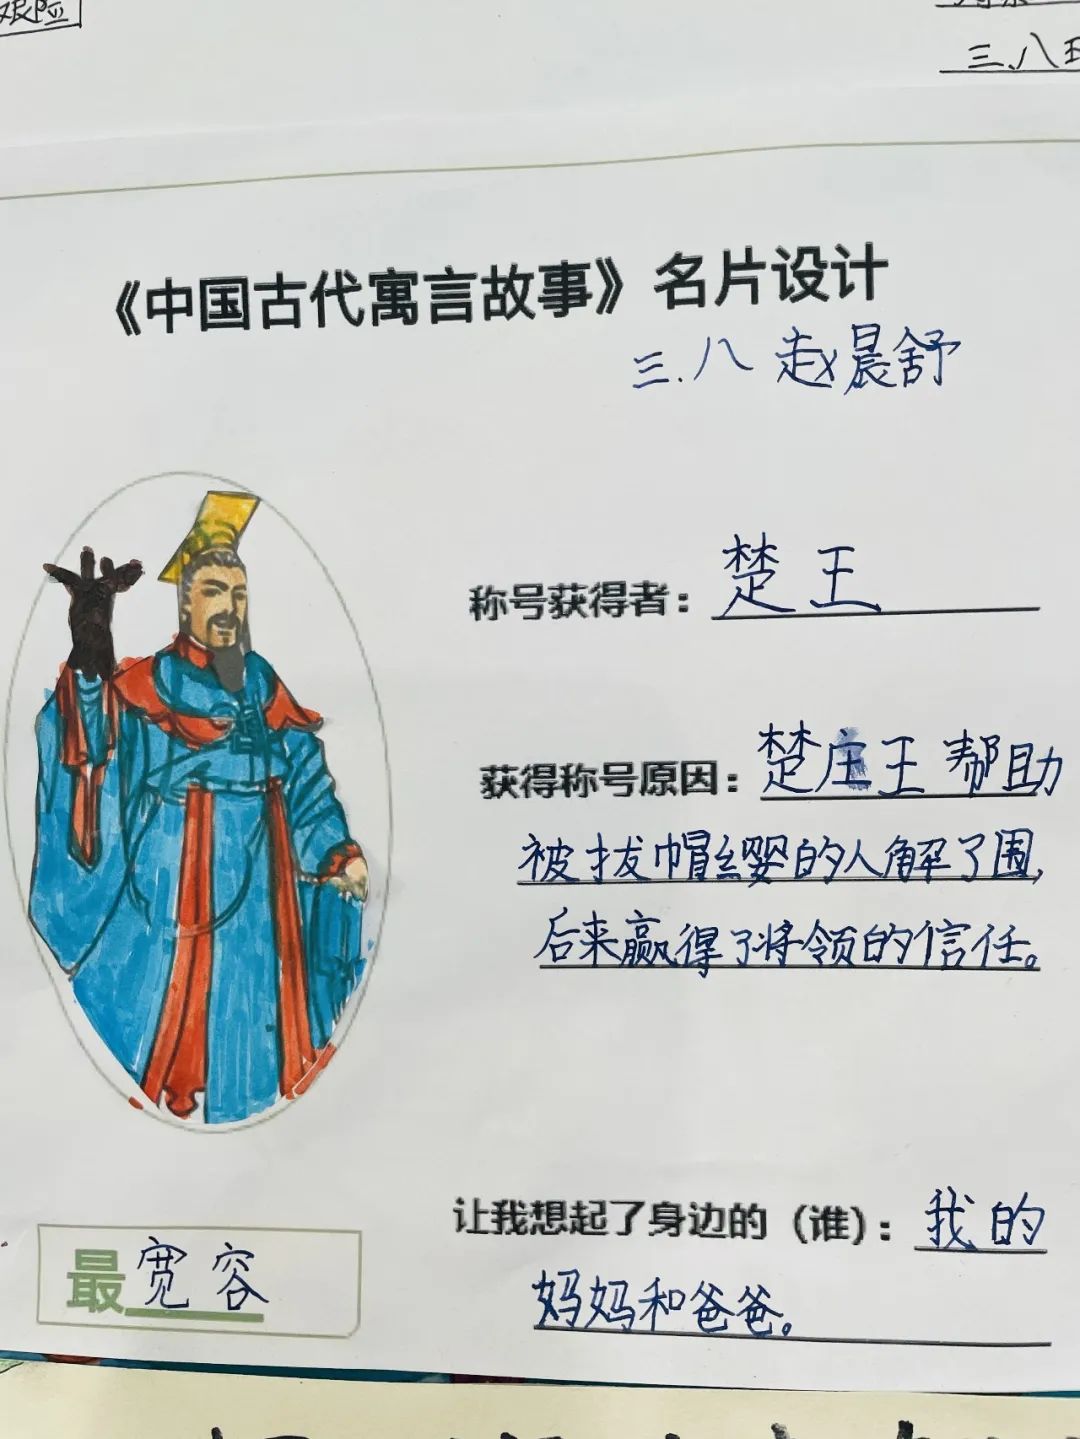 艰险
三.八
《中国古代寓言故事》名片设计
三.八 赵晨舒
称号获得者：楚王
获得称号原因：楚庄王帮助
被拔帽缨的人解了围，
后来赢得了将领的信任。
让我想起了身边的（谁）：我的
妈妈和爸爸。
最宽容